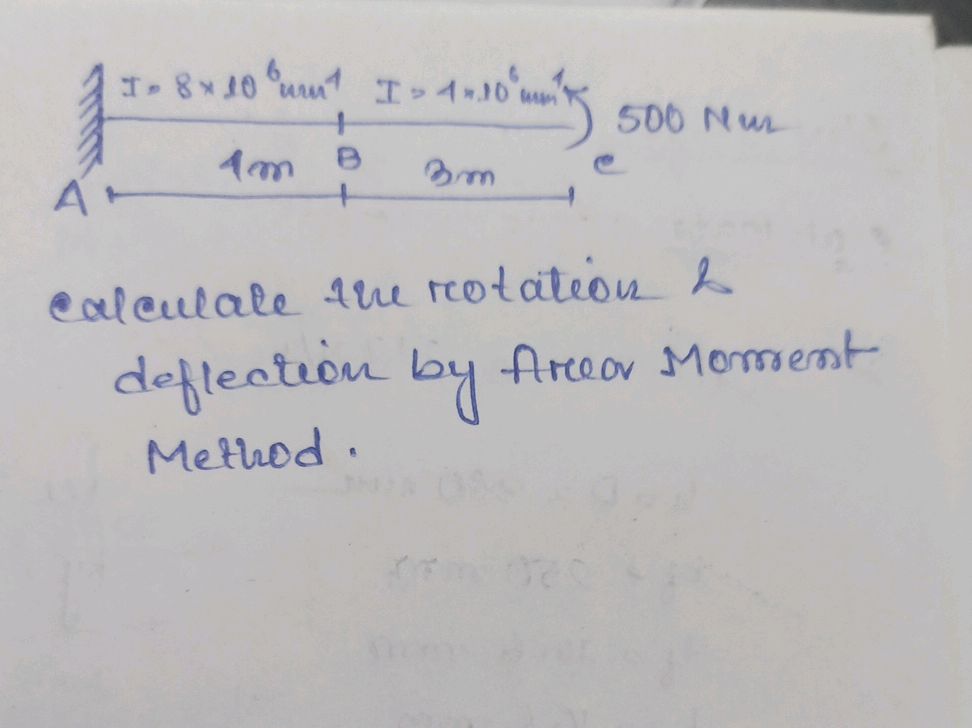 I = 8 × 10⁶ mm⁴ I = 4 × 10⁶ mm⁴ 500 Nm
4m B 3m C
A
calculate the rotation &
deflection by Area Moment
Method.